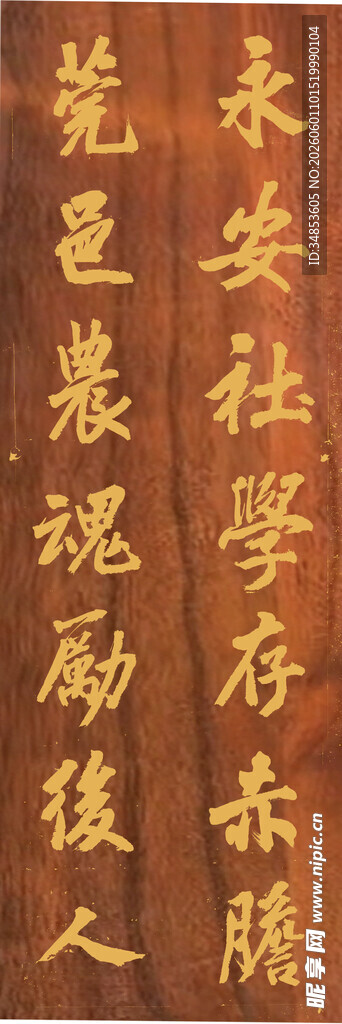 永安社學存赤膽
莞邑農魂勵後人
ID:34853605 NO:20260601101519990104
昵享网 www.nipic.cn